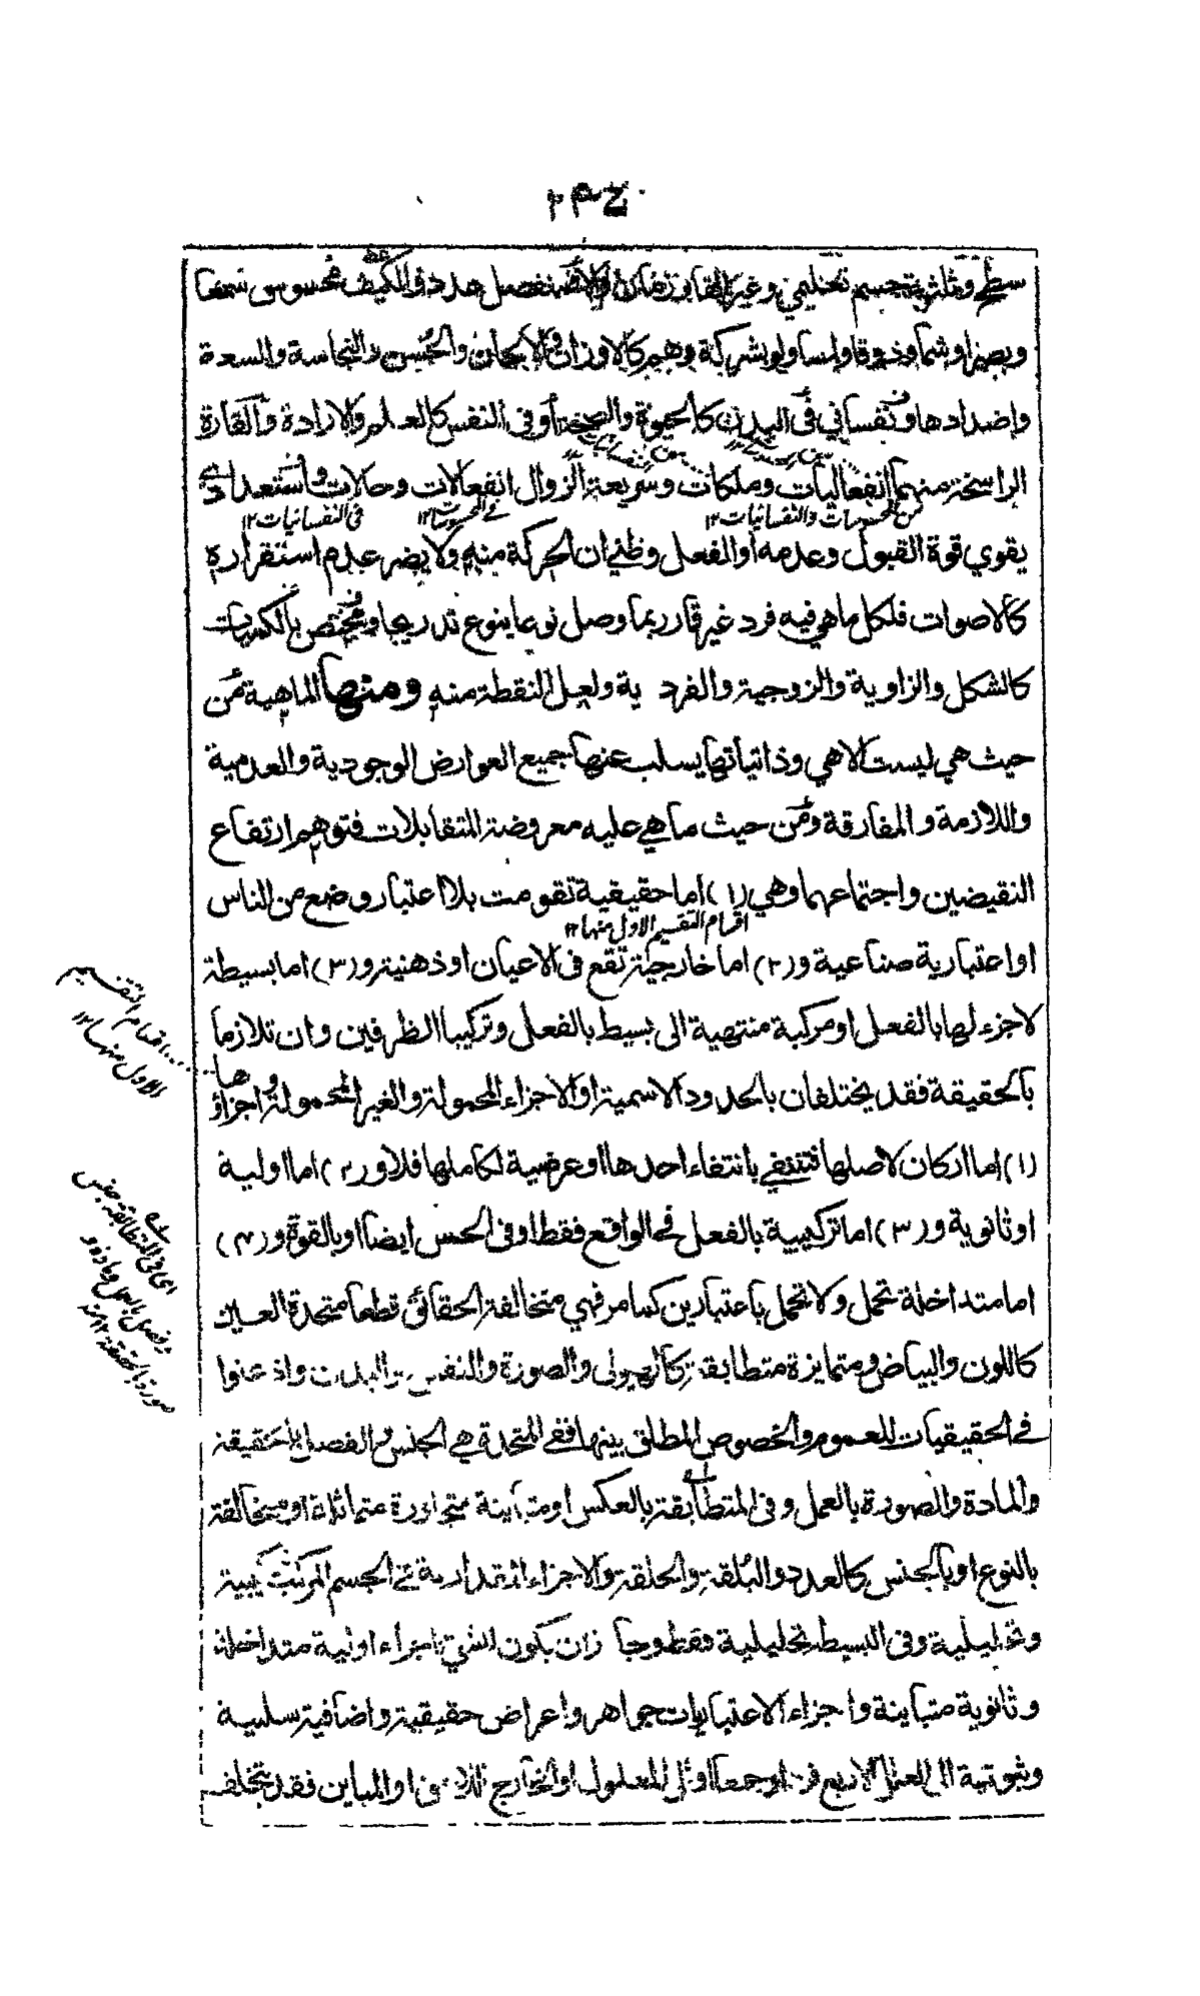 سطح وثلثة جسم تعليمي وغير القار زمان والمنفصل عدد والكيف محسوس سمعا
وبصرا وشما وذوقا ولمسا ولو بشركة وهم كالاوزان والالحان والحسن والنجاسة والسعة
واضدادها ونفساني في البدن كالحيوة والصحة او في النفس كالعلم والارادة والقارة
الراسخة منهما انفعاليات وملكات وسريعة الزوال انفعالات وحالات واستعدادي
من المحسوسات والنفسانيات ١٢ في المحسوسات ١٢ في النفسانيات ١٢
يقوي قوة القبول وعدمه او الفعل وظني ان الحركة منه ولا يضر عدم استقراره
كالاصوات فلكل ما هي فيه فرد غير قار ربما وصل نوعا بنوع تدريجا ومختص بالكميات
كالشكل والزاوية والزوجية والفردية ولعل النقطة منه ومنها الماهية من
حيث هي ليست الا هي وذاتياتها يسلب عنها جميع العوارض الوجودية والعدمية
واللازمة والمفارقة ومن حيث ما هي عليه معروضة المتقابلات فتوهم ارتفاع
النقيضين واجتماعهما وهي (١) اما حقيقية تقومت بلا اعتبار وضع من الناس
اقسام التقسيم الاول منها ١٢
او اعتبارية صناعية و(٢) اما خارجية تقع في الاعيان او ذهنية و(٣) اما بسيطة
لا جزء لها بالفعل او مركبة منتهية الى بسيط بالفعل وتركيبا الظرفين وان تلازما
بالحقيقة فقد يختلفان بالحدود الاسمية او الاجزاء المحمولة والغير المحمولة واجزاؤها
اقسام التقسيم
الاول منها ١٢
(١) اما اركان لاصلها فتنتفي بانتفاء احدها او عرضية لكاملها فلا و(٢) اما اولية
او ثانوية و(٣) اما تركيبية بالفعل في الواقع فقط او في الحس ايضا او بالقوة و(٤)
اما متداخلة تحمل ولا تحمل باعتبارين كما مر فهي متخالفة الحقائق قطعا متحدة العين
كاللون والبياض ومتمايزة متطابقة كالهيولى والصورة والنفس والبدن واذ عنوا
في الحقيقيات للعموم والخصوص المطلق بينها ففي المتحدة هي الجنس والفصل بالحقيقة
والمادة والصورة بالعمل وفي المتطابقة بالعكس او متباينة متجاورة متماثلة او متخالفة
اى في المتطابقة جنس
وفصل بالعمل ومادة و
صورة بالحقيقة ١٢ منه
بالنوع او بالجنس كالعدد والبلقة والخلقة والاجزاء المقدارية في الجسم المركب تركيبية
وتحليلية وفي البسيط تحليلية فقط وجاز ان يكون لشيء اجزاء اولية متداخلة
وثانوية متباينة واجزاء الاعتباريات جواهر واعراض حقيقية واضافية سلبية
وثبوتية الى العلل الاربع او جمعا او الى المعلول او الخارج او المباين فقد يتخلف